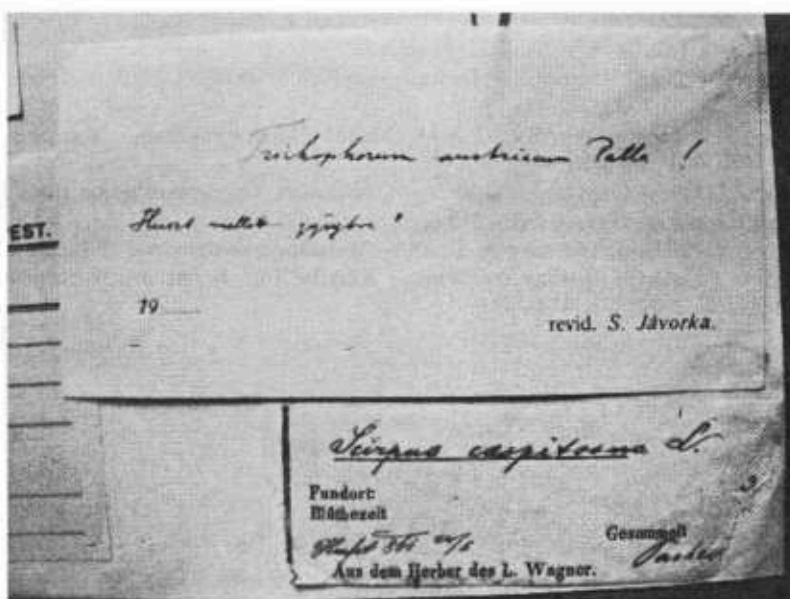 Trichophorum austriacum Palla !
EST.
Huszt mellett gyűjtve !
19
revid. S. Jávorka.
Scirpus caespitosus L.
Fundort:
Blüthezeit
Gesammelt
Aus dem Herbar des L. Wagner.